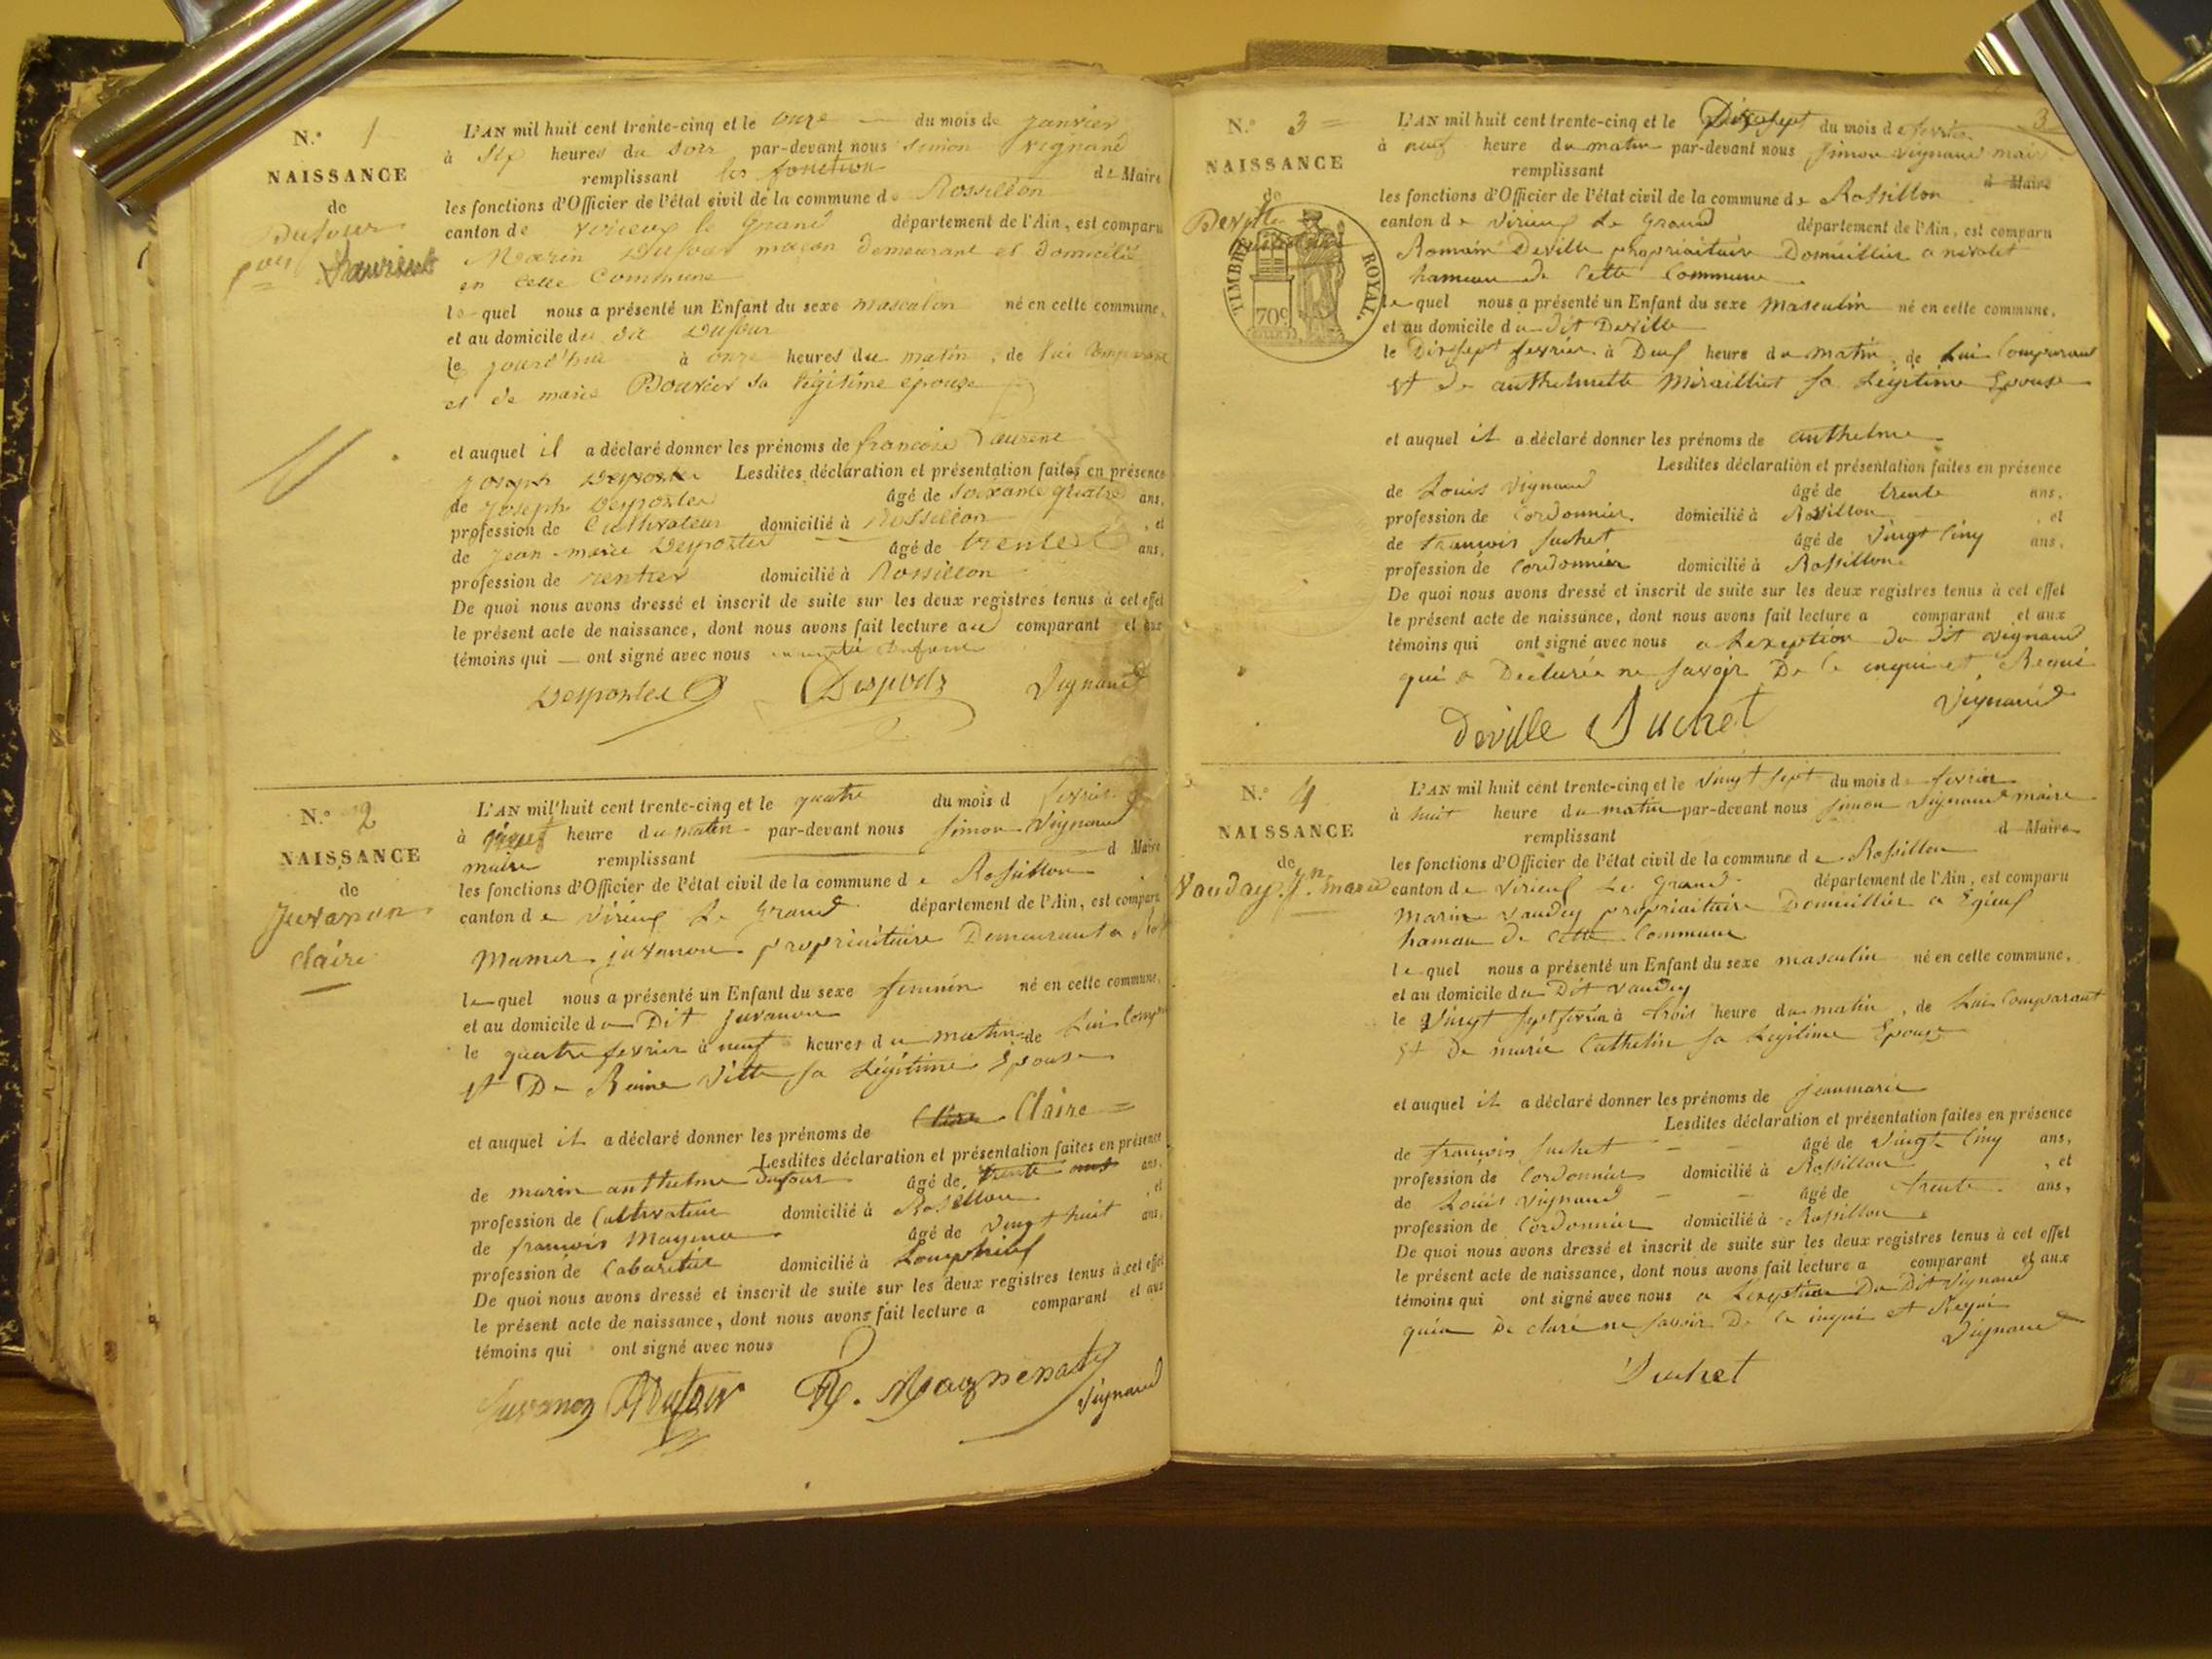 N.° 1
NAISSANCE
de
Dufour
Laurent
L'AN mil huit cent trente-cinq et le onze du mois de janvier
à Six heures du soir par-devant nous simon vignand
remplissant les fonction de Maire
les fonctions d'Officier de l'état civil de la commune de Rossillon
canton de virieux le grand département de l'Ain, est comparu
Marin Dufour maçon demeurant et domicilié
en cette Commune
lequel nous a présenté un Enfant du sexe masculin né en cette commune,
et au domicile du dit Dufour
le jourd'hui à onze heures du matin, de lui Comparant
et de marie Bouvier sa légitime épouse
et auquel il a déclaré donner les prénoms de francois Laurent
joseph Lesdites déclaration et présentation faites en présence
de joseph Desportes âgé de soixante quatre ans,
profession de Cultivateur domicilié à Rossillon, et
de jean-marie Desportes âgé de trente ans,
profession de rentier domicilié à Rossillon
De quoi nous avons dressé et inscrit de suite sur les deux registres tenus à cet effet
le présent acte de naissance, dont nous avons fait lecture au comparant et aux
témoins qui ont signé avec nous
Desportes Vignand
N.° 2
NAISSANCE
de
Juvanon
claire
L'AN mil huit cent trente-cinq et le quatre du mois d fevrier
à heure du matin par-devant nous simon Vignand
maire remplissant d Maire
les fonctions d'Officier de l'état civil de la commune de Rossillon
canton de Virieux Le Grand département de l'Ain, est comparu
Mamer juvanon propriaitaire Demeurant a
lequel nous a présenté un Enfant du sexe feminin né en cette commune,
et au domicile du Dit juvanon
le quatre fevrier à neuf heures du matin de Lui
et De Reine Vitte sa Légitime Epouse
et auquel il a déclaré donner les prénoms de Claire
Lesdites déclaration et présentation faites en présence
de marin anthelme dufour âgé de trente ans ans,
profession de Cultivateur domicilié à Rossillon, et
de francois âgé de Vingt huit ans,
profession de Cabaretier domicilié à
De quoi nous avons dressé et inscrit de suite sur les deux registres tenus à cet effet
le présent acte de naissance, dont nous avons fait lecture a comparant et aux
témoins qui ont signé avec nous
Juvanon Dufour Magnenat Vignand
3
N.° 3
NAISSANCE
de
Deville
TIMBRE ROYAL.
70c
L'AN mil huit cent trente-cinq et le Dix sept du mois de fevrier
à neuf heure du matin par-devant nous simon vignand maire
remplissant d Maire
les fonctions d'Officier de l'état civil de la commune de Rossillon
canton de Virieux Le Grand département de l'Ain, est comparu
Romain Deville propriaitaire Domicillier a nivolet
hameau de Cette Commune
lequel nous a présenté un Enfant du sexe masculin né en cette commune,
et au domicile du dit Deville
le Dix sept fevrier à Deux heure du matin, de Lui Comparant
et De anthelmette Miralliet sa Légitime Epouse
et auquel il a déclaré donner les prénoms de anthelme
Lesdites déclaration et présentation faites en présence
de Louis Vignand âgé de trente ans,
profession de Cordonnier domicilié à Rossillon, et
de francois suchet âgé de Vingt Cinq ans,
profession de Cordonnier domicilié à Rossillon
De quoi nous avons dressé et inscrit de suite sur les deux registres tenus à cet effet
le présent acte de naissance, dont nous avons fait lecture a comparant et aux
témoins qui ont signé avec nous a Lexeption du dit vignand
qui a Declarée ne savoir De ce enquis et Requi
Deville Suchet Vignand
N.° 4
NAISSANCE
de
Vauday. Jn. marie
L'AN mil huit cent trente-cinq et le Vingt sept du mois de fevrier
à huit heure du matin par-devant nous simon Vignand maire
remplissant d Maire
les fonctions d'Officier de l'état civil de la commune de Rossillon
canton de Virieux Le Grand département de l'Ain, est comparu
Marin Vaudey propriaitaire Domicillier a Egieux
hamau de Cette Commune
lequel nous a présenté un Enfant du sexe masculin né en cette commune,
et au domicile du Dit Vaudey
le Vingt sept fevrier à trois heure du matin, de Lui Comparant
et De marie Cathelin sa Legitime Epouse
et auquel il a déclaré donner les prénoms de jeanmarie
Lesdites déclaration et présentation faites en présence
de francois suchet âgé de Vingt Cinq ans,
profession de Cordonnier domicilié à Rossillon, et
de Louis Vignand âgé de trente ans,
profession de Cordonnier domicilié à Rossillon
De quoi nous avons dressé et inscrit de suite sur les deux registres tenus à cet effet
le présent acte de naissance, dont nous avons fait lecture a comparant et aux
témoins qui ont signé avec nous a Lexeption Du Dit Vignand
qui a De claré ne savoir De ce inqui et Requi
Suchet Vignand